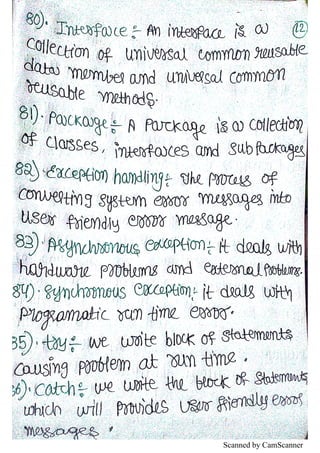 80). Interface:- An interface is a (12)
collection of universal common reusable
data member and universal common
reusable methods.
81). Package:- A Package is a collection
of classes, interfaces and Sub Packages
82) Exception handling:- The process of
converting system error messages into
user friendly error message.
83). Asynchronous exception:- it deals with
hardware problems and external Problems.
84). Synchronous exception:- it deals with
programatic run time error.
85). try:- we write block of statements
causing problem at run time.
86). Catch:- we write the block of Statements
which will Provides User friendly error
messages.
Scanned by CamScanner